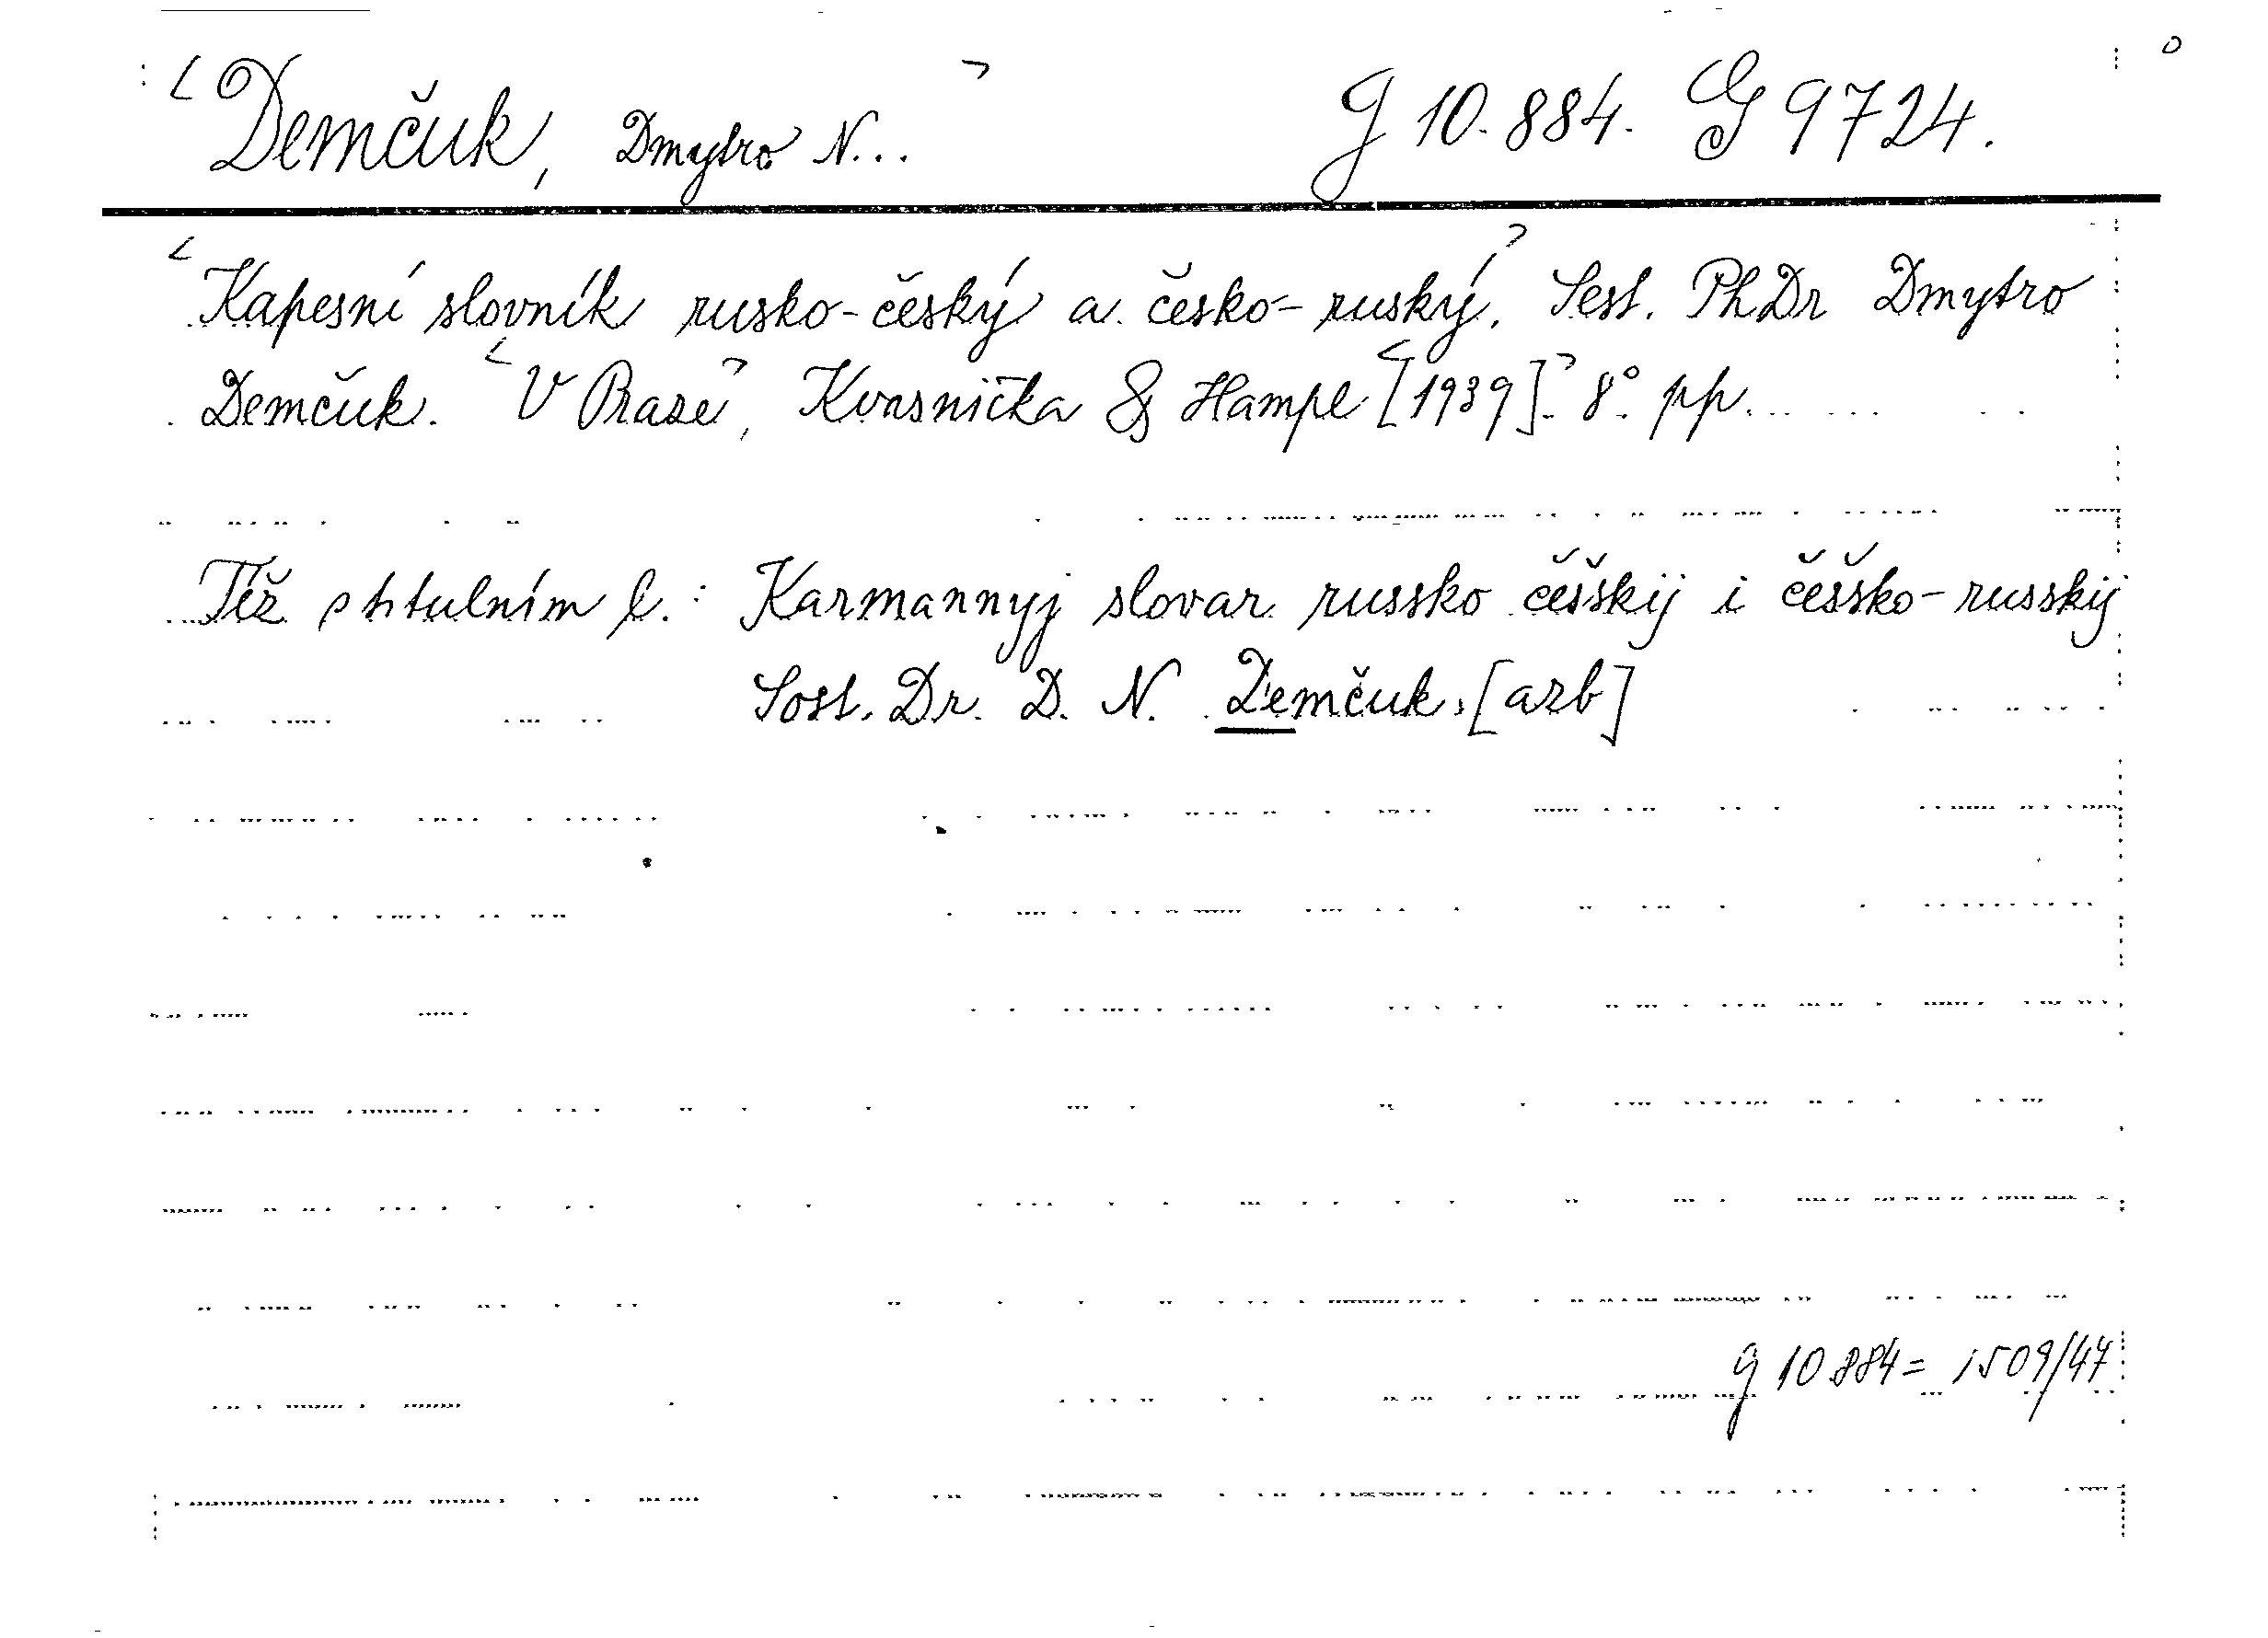 <Demčuk, Dmytro N...> g 10.884. G 9724.
<Kapesní slovník rusko-český a česko-ruský.> Sest. PhDr Dmytro
Demčuk. <V Praze>, Kvasnička & Hampl <[1939].> 8° pp...
Též s titulním l.: Karmannyj slovar russko češskij i češsko-russkij
Sost. Dr. D. N. Demčuk. [azb]
g 10884 = 1509/47